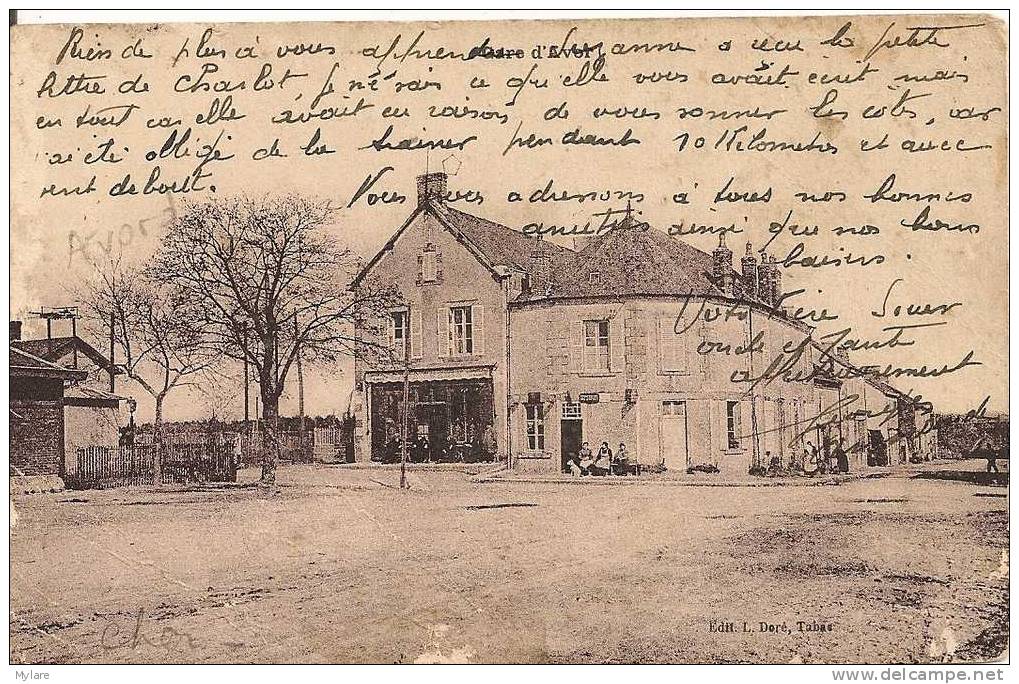 Rien de plus à vous apprendre Suzanne a recu la petite
Gare d'Avor
lettre de Charlot, je ne sais ce qu'elle vous avait écrit mais
en tout cas elle avait eu raison, de vous sonner les côtes, car
ai été obligé de la trainer pendant 10 Kilometres et avec
vent debout.
Vous vous adressons à tous nos bonnes
amitiés ainsi que nos bons
baisers.
Avord
Votre Soeur
oncle et Tante
affectueusement
Edit. L. Doré, Tabac
Cher
Mylare
http://www.delcampe.net